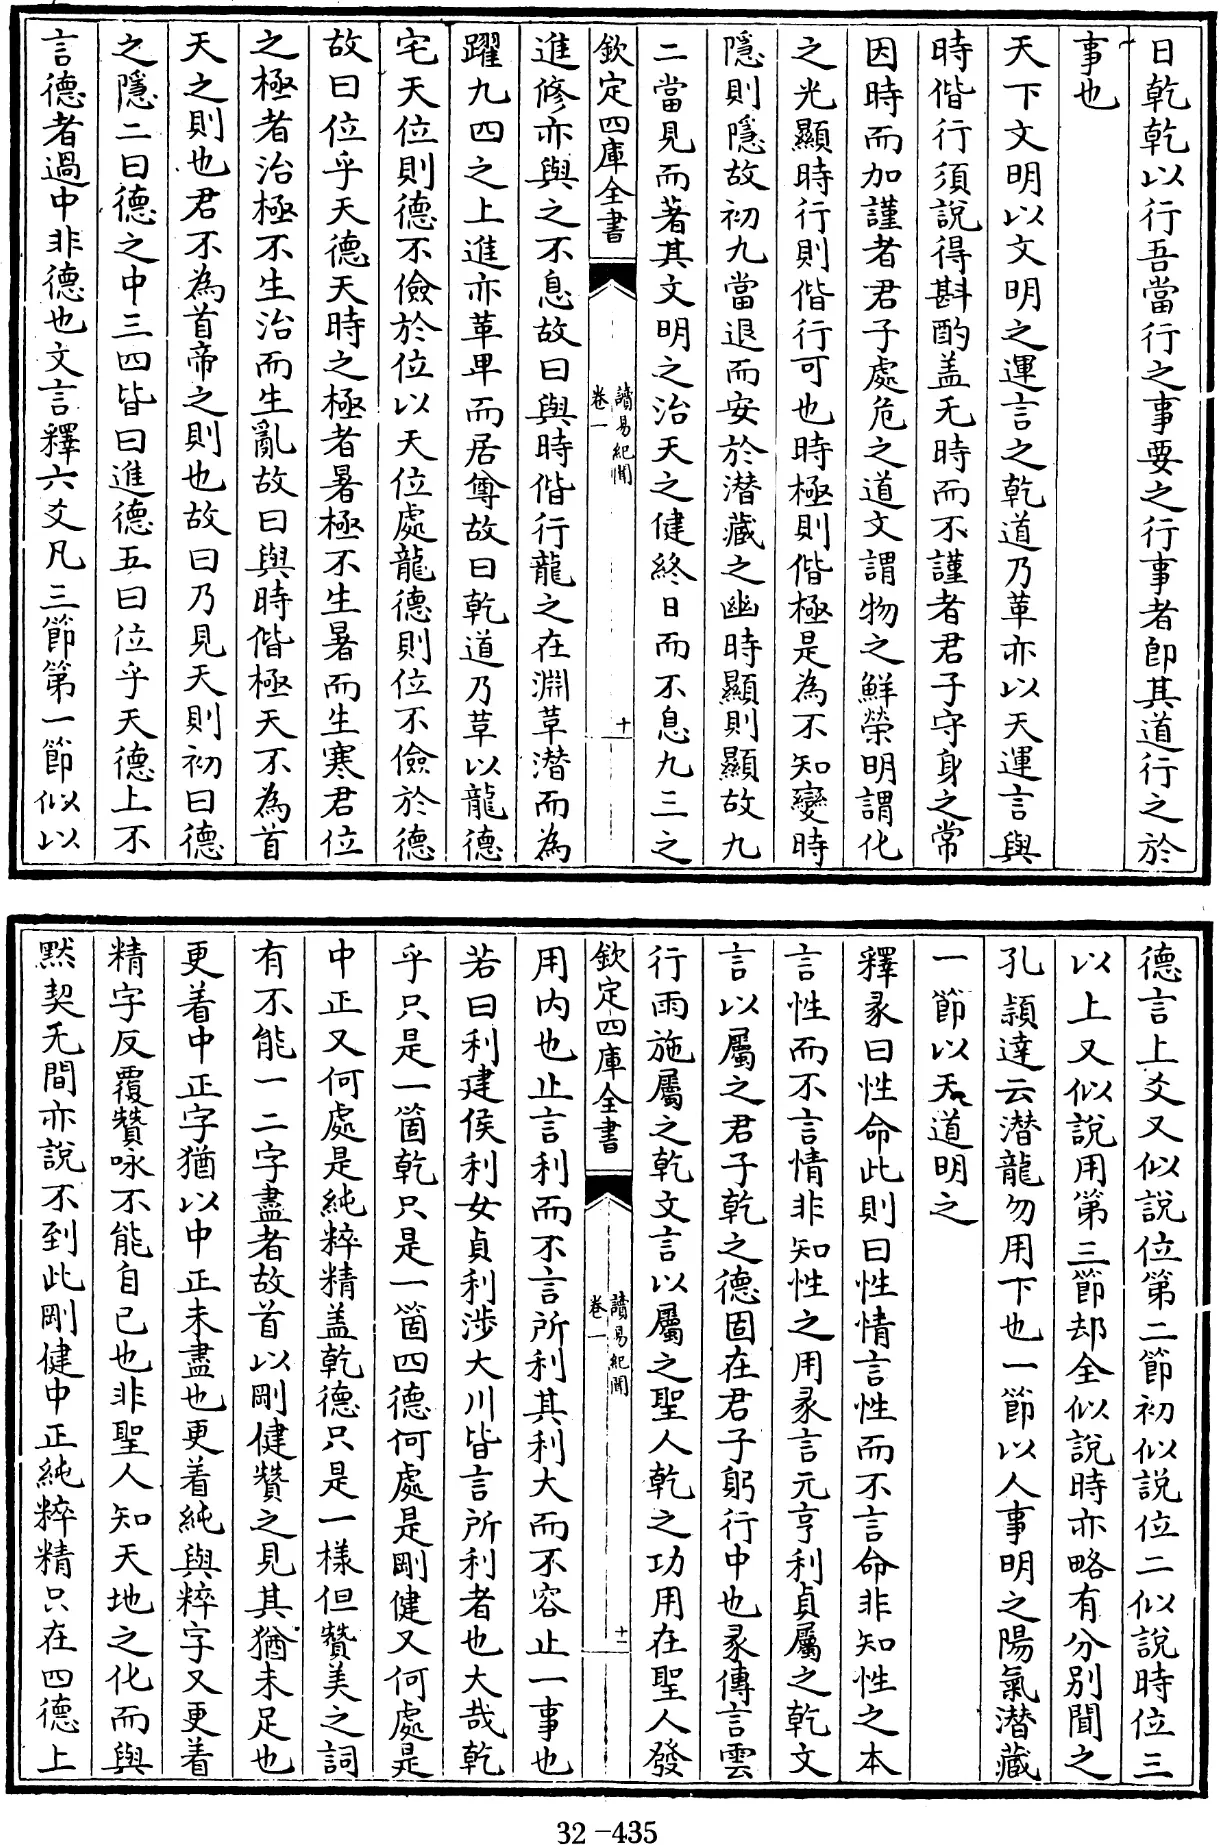 日乾乾以行吾當行之事要之行事者即其道行之於
事也
天下文明以文明之運言之乾道乃革亦以天運言與
時偕行須說得斟酌盖无時而不謹者君子守身之常
因時而加謹者君子處危之道文謂物之鮮榮明謂化
之光顯時行則偕行可也時極則偕極是為不知變時
隱則隱故初九當退而安於潜藏之幽時顯則顯故九
二當見而著其文明之治天之健終日而不息九三之
欽定四庫全書
讀易紀聞
卷一
十
進修亦與之不息故曰與時偕行龍之在淵革潜而為
躍九四之上進亦革畀而居尊故曰乾道乃革以龍德
宅天位則德不儉於位以天位處龍德則位不儉於德
故曰位乎天德天時之極者暑極不生暑而生寒君位
之極者治極不生治而生亂故曰與時偕極天不為首
天之則也君不為首帝之則也故曰乃見天則初曰德
之隱二曰德之中三四皆曰進德五曰位乎天德上不
言德者過中非德也文言釋六爻凡三節第一節似以
德言上爻又似說位第二節初似說位二似說時位三
以上又似說用第三節却全似說時亦略有分別聞之
孔頴達云潜龍勿用下也一節以人事明之陽氣潜藏
一節以天道明之
釋彖曰性命此則曰性情言性而不言命非知性之本
言性而不言情非知性之用彖言元亨利貞屬之乾文
言以屬之君子乾之德固在君子躬行中也彖傳言雲
行雨施屬之乾文言以屬之聖人乾之功用在聖人發
欽定四庫全書
讀易紀聞
卷一
十一
用内也止言利而不言所利其利大而不容止一事也
若曰利建侯利女貞利涉大川皆言所利者也大哉乾
乎只是一箇乾只是一箇四德何處是剛健又何處是
中正又何處是純粹精盖乾德只是一樣但贊美之詞
有不能一二字盡者故首以剛健贊之見其猶未足也
更着中正字猶以中正未盡也更着純與粹字又更着
精字反覆贊咏不能自已也非聖人知天地之化而與
黙契无間亦說不到此剛健中正純粹精只在四德上
32-435